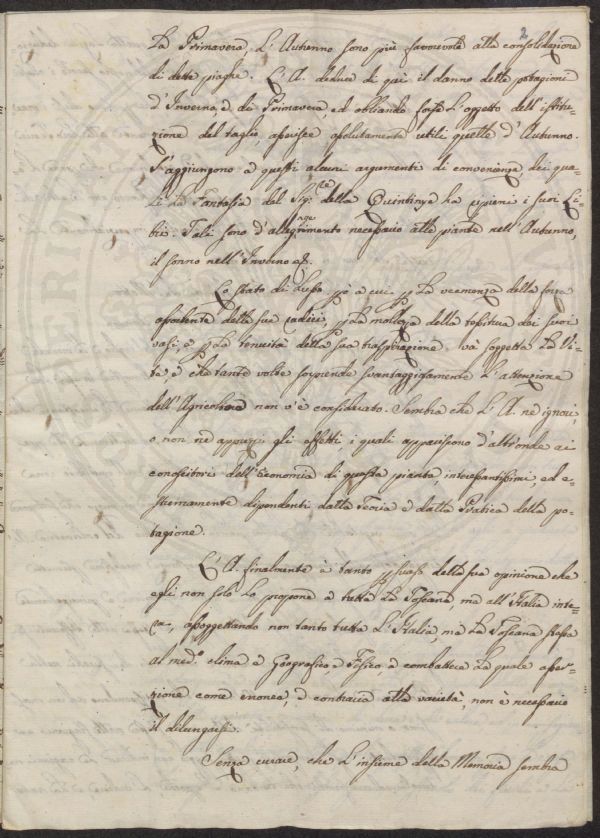 2
La Primavera, e L'Autunno sono più favorevole alla consolidazione
di dette piaghe. L'A. deduce di quì il danno delle potagioni
d'Inverno, e di Primavera, ed obliando forse L'oggetto dell'istitu=
zione del taglio, asserisce assolutamente utili quelle d'Autunno.
S'aggiungono a questi alcuni argumenti di convenienza dei qua=
li La Fantasia del Sig.re della Quintinye ha ripieni i suoi Li=
bri. Tali sono d'allegrimento necessario alle piante nell'Autunno,
il sonno nell'Inverno &c.
Lo stato di Lusso p. a cui p. La veemenza della forza
assorbente delle sue radici, p. La mollezza della tessitura dei suoi
vasi, e p. La tenuità della sua traspirazione và soggetta La Vi=
te, e che tante volte sorprende svantaggiosamente L'attenzione
dell'Agricoltore non v'è considerato. Sembra che L'A. ne ignori,
o non ne apprezzi gli effetti, i quali appariscono d'altronde ai
conoscitori dell'Economia di questa pianta interessantissimi, ed e=
stremamente dipendenti dalla Teoria e dalla Pratica della po=
tagione.
L'A. finalmente è tanto persuaso della sua opinione che
egli non solo Lo propone a tutta La Toscana, ma all'Italia inte=
ra, assoggettando non tanto tutta L'Italia, ma La Toscana stessa
al med.o clima e Geografico, e Fisico, a combattere La quale asser=
zione come erronea, e contraria alla varietà, non è necessario
il dilungarsi.
Senza curare, che L'insieme della Memoria sembra